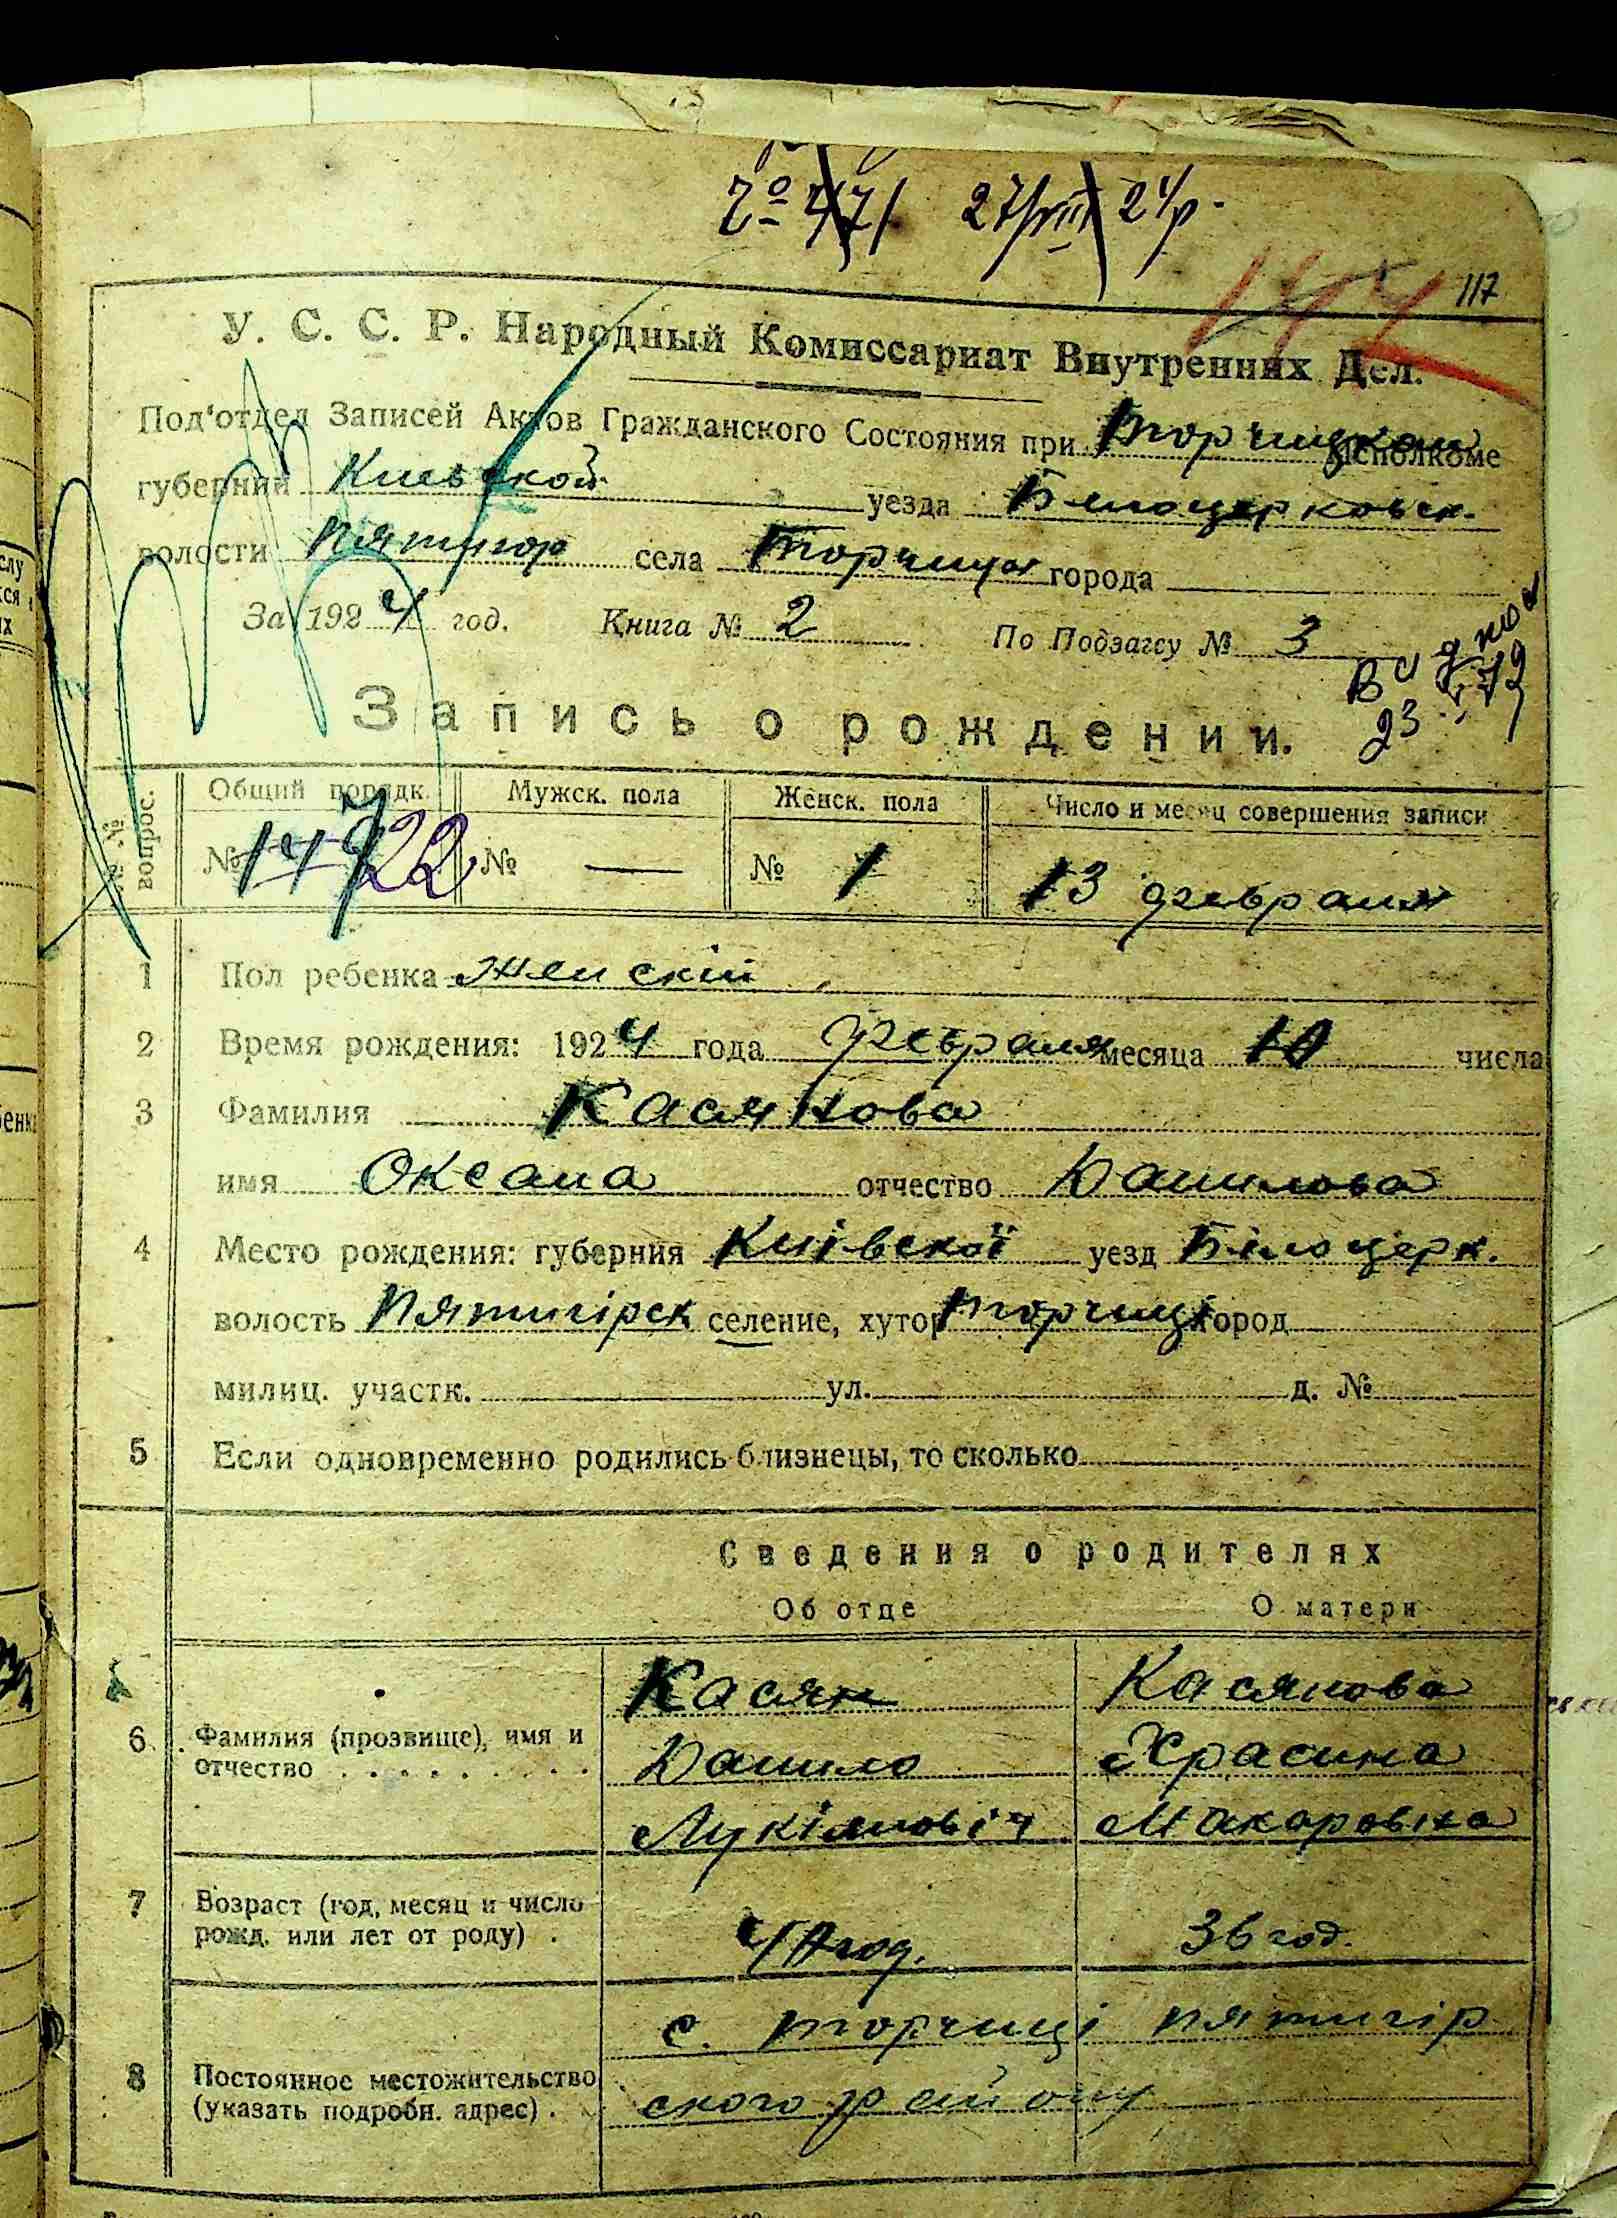 27/VIII 24р.
117
У. С. С. Р. Народный Комиссариат Внутренних Дел.
Под'отдел Записей Актов Гражданского Состояния при Торчицком Исполкоме
губернии Киевской уезда Билоцерковск.
волости Пятигор села Торчица города
За 1924 год. Книга № 2 По Подзагсу № 3
Запись о рождении.
№№ вопрос. Общий порядк. Мужск. пола Женск. пола Число и месяц совершения записи
№ 22 № — № 1 13 февраля
1 Пол ребенка женскій
2 Время рождения: 1924 года февраля месяца 10 числа
3 Фамилия Касянова
имя Оксана отчество Данилова
4 Место рождения: губерния Київскої уезд Білоцерк.
волость Пятигірск селение, хутор Торчиці город
милиц. участк. ул. д. №
5 Если одновременно родились близнецы, то сколько
Сведения о родителях
Об отце О матери
Касян Касянова
6 Фамилия (прозвище), имя и
отчество Данило Храсина
Лукіянович Макаровна
7 Возраст (год, месяц и число
рожд. или лет от роду) год. 36 год.
с. Торчиці Пятигір
8 Постоянное местожительство
(указать подробн. адрес) ского району